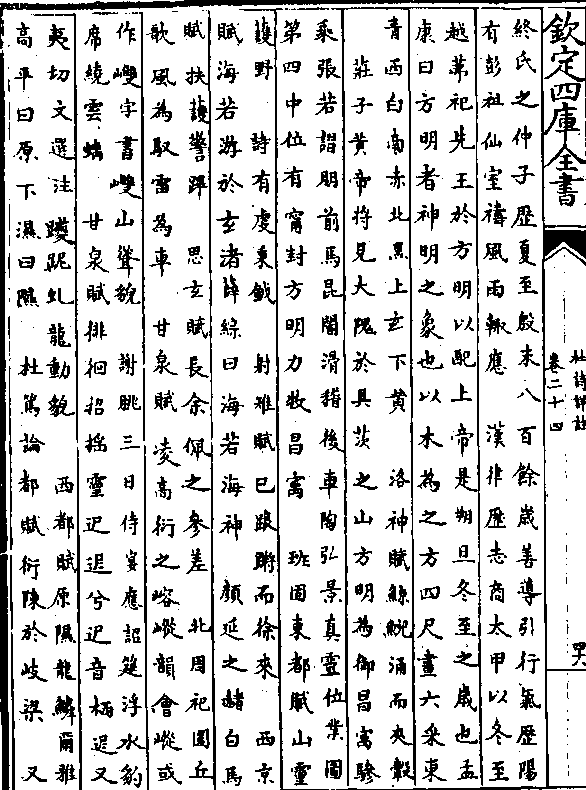 欽定四庫全書
杜詩詳註
卷二十四
終氏之仲子歷夏至殷末八百餘歲善導引行氣歷陽
有彭祖仙室禱風雨輒應 漢律歷志商太甲以冬至
越茀祀先王於方明以配上帝是朔旦冬至之歲也孟
康曰方明者神明之象也以木為之方四尺畫六采東
青西白南赤北黑上玄下黃 洛神賦鯨鯢涌而夾轂
莊子黃帝將見大隗於具茨之山方明為御昌㝢驂
乘張若謵朋前馬昆閽滑稽後車陶弘景真靈位業圖
第四中位有甯封方明力牧昌㝢 班固東都賦山靈
護野 詩有虔秉鉞 射雉賦已踉蹡而徐來 西京
賦海若游於玄渚薛綜曰海若海神 顏延之赭白馬
賦扶護警蹕 思玄賦長余佩之參差 北周祀圜丘
歌風為馭雷為車 甘泉賦凌高衍之嵱嵷韻會嵷或
作㟅字書㟅山聳貌 謝朓三日侍宴應詔筵浮水豹
席繞雲螭 甘泉賦徘徊招搖靈迟迡兮迟音栖迡又
夷切文選注蠖跜虬龍動貌 西都賦原隰龍鱗爾雅
高平曰原下濕曰隰 杜篤論都賦衍陳於岐梁 又